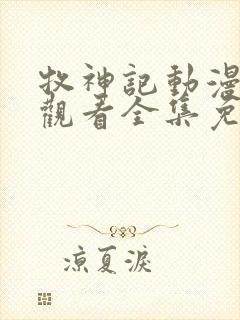 牧神記動漫
觀看全集免
涼夏淚